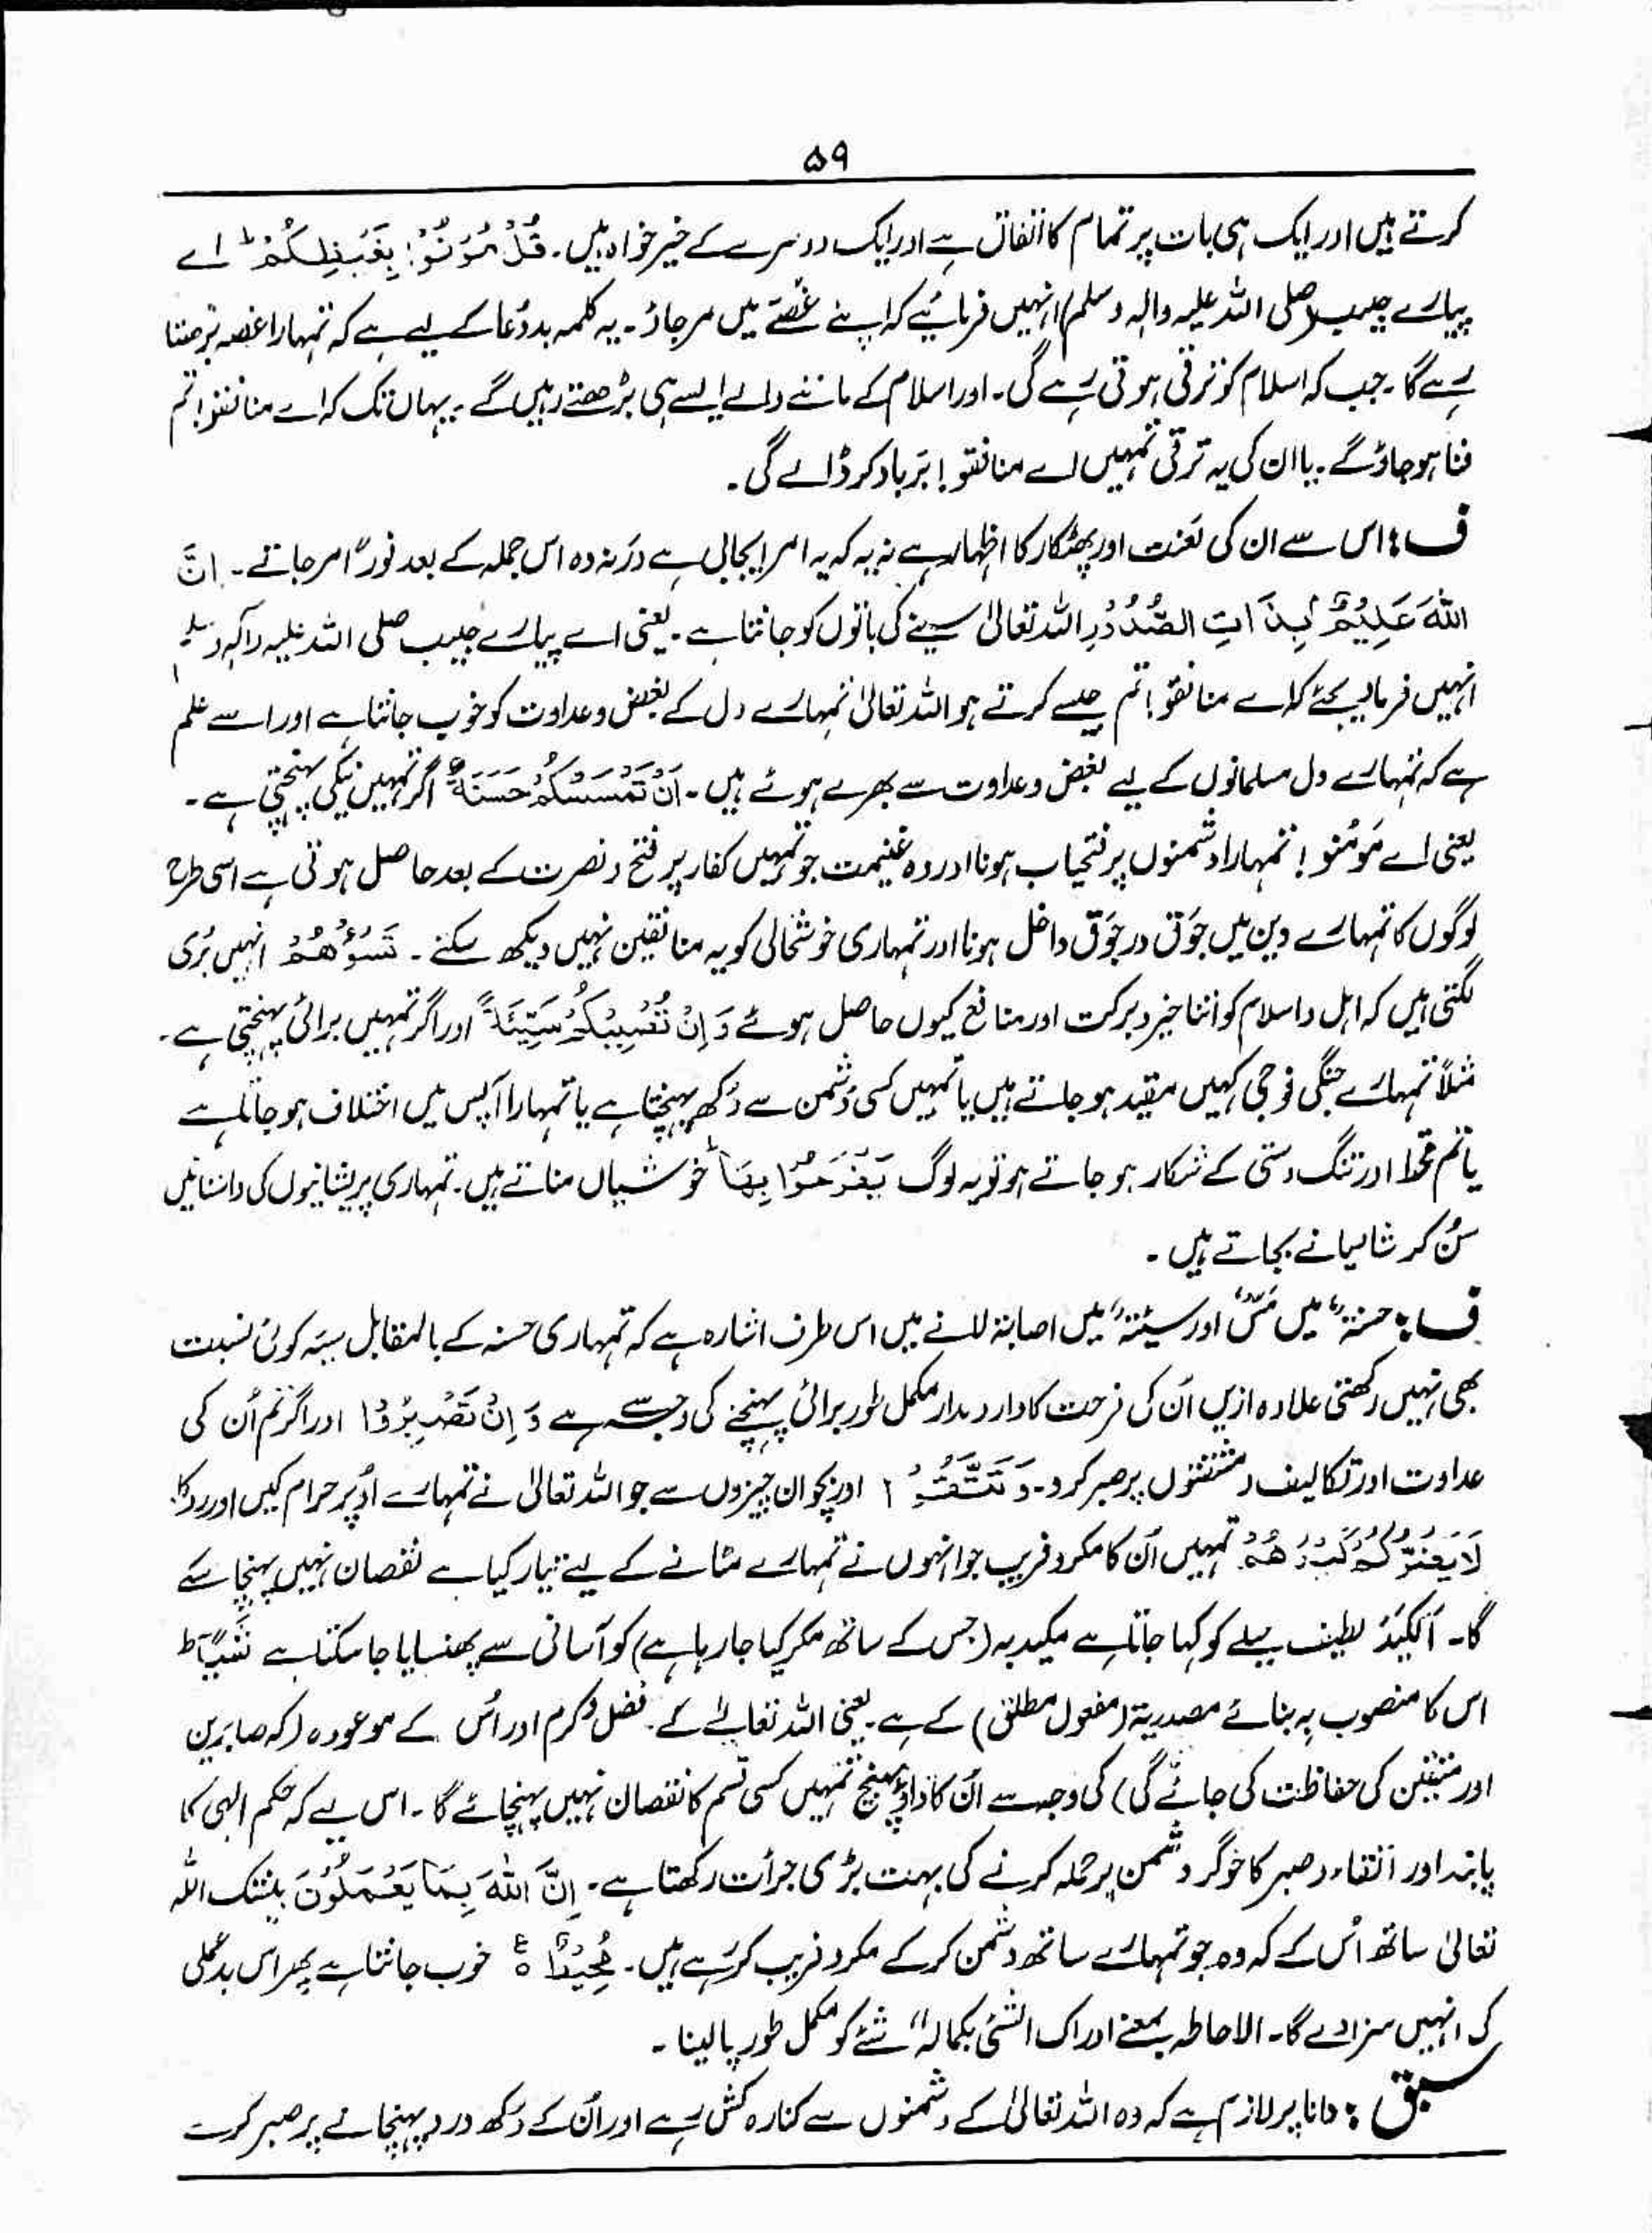 ۵۹
کرتے ہیں اور ایک ہی بات پر تمام کا اتفاق ہے اور ایک دوسرے کے خیر خواہ ہیں۔ قُلْ مُوْتُوْا بِغَیْظِکُمْ ؕ اے
پیارے حبیب (صلی اللہ علیہ والہ وسلم) انہیں فرمائیے کہ اپنے غصّے میں مر جاؤ۔ یہ کلمہ بددُعا کے لیے ہے کہ تمہارا غصہ بڑھتا
رہے گا۔ جب کہ اسلام کو ترقی ہوتی رہے گی۔ اور اسلام کے ماننے والے ایسے ہی بڑھتے رہیں گے۔ یہاں تک کہ اے منافقو! تم
فنا ہو جاؤ گے۔ یا ان کی یہ ترقی تمہیں اے منافقو! بَرباد کر ڈالے گی۔
ف : اس سے ان کی لعنت اور پھٹکار کا اظہار ہے نہ یہ کہ یہ امر ایجابی ہے ورنہ وہ اس جملہ کے بعد فوراً مر جاتے۔ اِنَّ
اللّٰہَ عَلِیْمٌۢ بِذَاتِ الصُّدُوْرِ اللہ تعالیٰ سینے کی باتوں کو جانتا ہے۔ یعنی اے پیارے حبیب صلی اللہ علیہ وآلہ وسلم
انہیں فرما دیجئے کہ اے منافقو! تم جلسے کرتے ہو اللہ تعالیٰ تمہارے دل کے بُغض و عداوت کو خوب جانتا ہے اور اسے علم
ہے کہ تمہارے دل مسلمانوں کے لیے بُغض و عداوت سے بھرے ہوئے ہیں۔ اَنْ تَمْسَسْکُمْ حَسَنَۃٌ اگر تمہیں نیکی پہنچتی ہے۔
یعنی اے مؤمنو! تمہارا دشمنوں پر فتحیاب ہونا اور وہ غنیمت جو تمہیں کفار پر فتح و نصرت کے بعد حاصل ہوتی ہے اسی طرح
لوگوں کا تمہارے دین میں جَوْق در جَوْق داخل ہونا اور تمہاری خوشحالی کو یہ منافقین نہیں دیکھ سکتے۔ تَسُؤْھُمْ انہیں بُری
لگتی ہیں کہ اہل و اسلام کو اتنا خیر و برکت اور منافع کیوں حاصل ہوئے وَ اِنْ تُصِبْکُمْ سَیِّئَۃٌ اور اگر تمہیں برائی پہنچتی ہے۔
مثلاً تمہارے جنگی فوجی کہیں مقید ہو جاتے ہیں یا تمہیں کسی دُشمن سے دُکھ پہنچتا ہے یا تمہارا آپس میں اختلاف ہو جاتا ہے
یا تم قحط اور تنگ دستی کے شکار ہو جاتے ہو تو یہ لوگ یَّفْرَحُوْا بِھَا ؕ خوشیاں مناتے ہیں۔ تمہاری پریشانیوں کی داستانیں
سُن کر شادیانے بجاتے ہیں۔
ف : حسنۃ" میں مَسّ" اور سیئۃ" میں اصابۃ لانے میں اس طرف اشارہ ہے کہ تمہاری حسنہ کے بالمقابل سیّہ کوئی نسبت
بھی نہیں رکھتی علاوہ ازیں اُن کی فرحت کا دارومدار مکمل طور برائی پہنچنے کی وجہ سے ہے وَ اِنْ تَصْبِرُوْا اور اگر تم اُن کی
عداوت اور تکالیف و مشقتوں پر صبر کرو۔ وَ تَتَّقُوْا اور بچو ان چیزوں سے جو اللہ تعالیٰ نے تمہارے اُوپر حرام کیں اور روکا
لَا یَضُرُّکُمْ کَیْدُھُمْ تمہیں اُن کا مکر و فریب جو انہوں نے تمہارے مٹانے کے لیے تیار کیا ہے نقصان نہیں پہنچا سکے
گا۔ اَلْکَیْدُ لطیف حیلے کو کہا جاتا ہے مکید بہ (جس کے ساتھ مکر کیا جا رہا ہے) کو آسانی سے پھنسایا جا سکتا ہے شَیْـًٔا ؕ
اس کا منصوب بہ بنائے مصدریۃ (مفعول مطلق) کے ہے۔ یعنی اللہ تعالیٰ کے فضل و کرم اور اُس کے موعودہ (کہ صابرین
اور متقین کی حفاظت کی جائے گی) کی وجہ سے اُن کا داؤ پیچ تمہیں کسی قسم کا نقصان نہیں پہنچائے گا۔ اس لیے کہ حکم الٰہی کا
پابند اور اتقاء و صبر کا خوگر دشمن پر حملہ کرنے کی بہت بڑی جرأت رکھتا ہے۔ اِنَّ اللّٰہَ بِمَا یَعْمَلُوْنَ بیشک اللہ
تعالیٰ ساتھ اُس کے کہ وہ جو تمہارے ساتھ دشمن کر کے مکر و فریب کر رہے ہیں۔ مُحِیْطٌ ۠ خوب جانتا ہے پھر اس بدعملی
کی انہیں سزا دے گا۔ الاحاطہ بمعنے ادراک الشئ بکمالہ" شئے کو مکمل طور پا لینا۔
سبق : دانا پر لازم ہے کہ وہ اللہ تعالیٰ کے دشمنوں سے کنارہ کش رہے اور اُن کے دُکھ درد پہنچانے پر صبر کرے